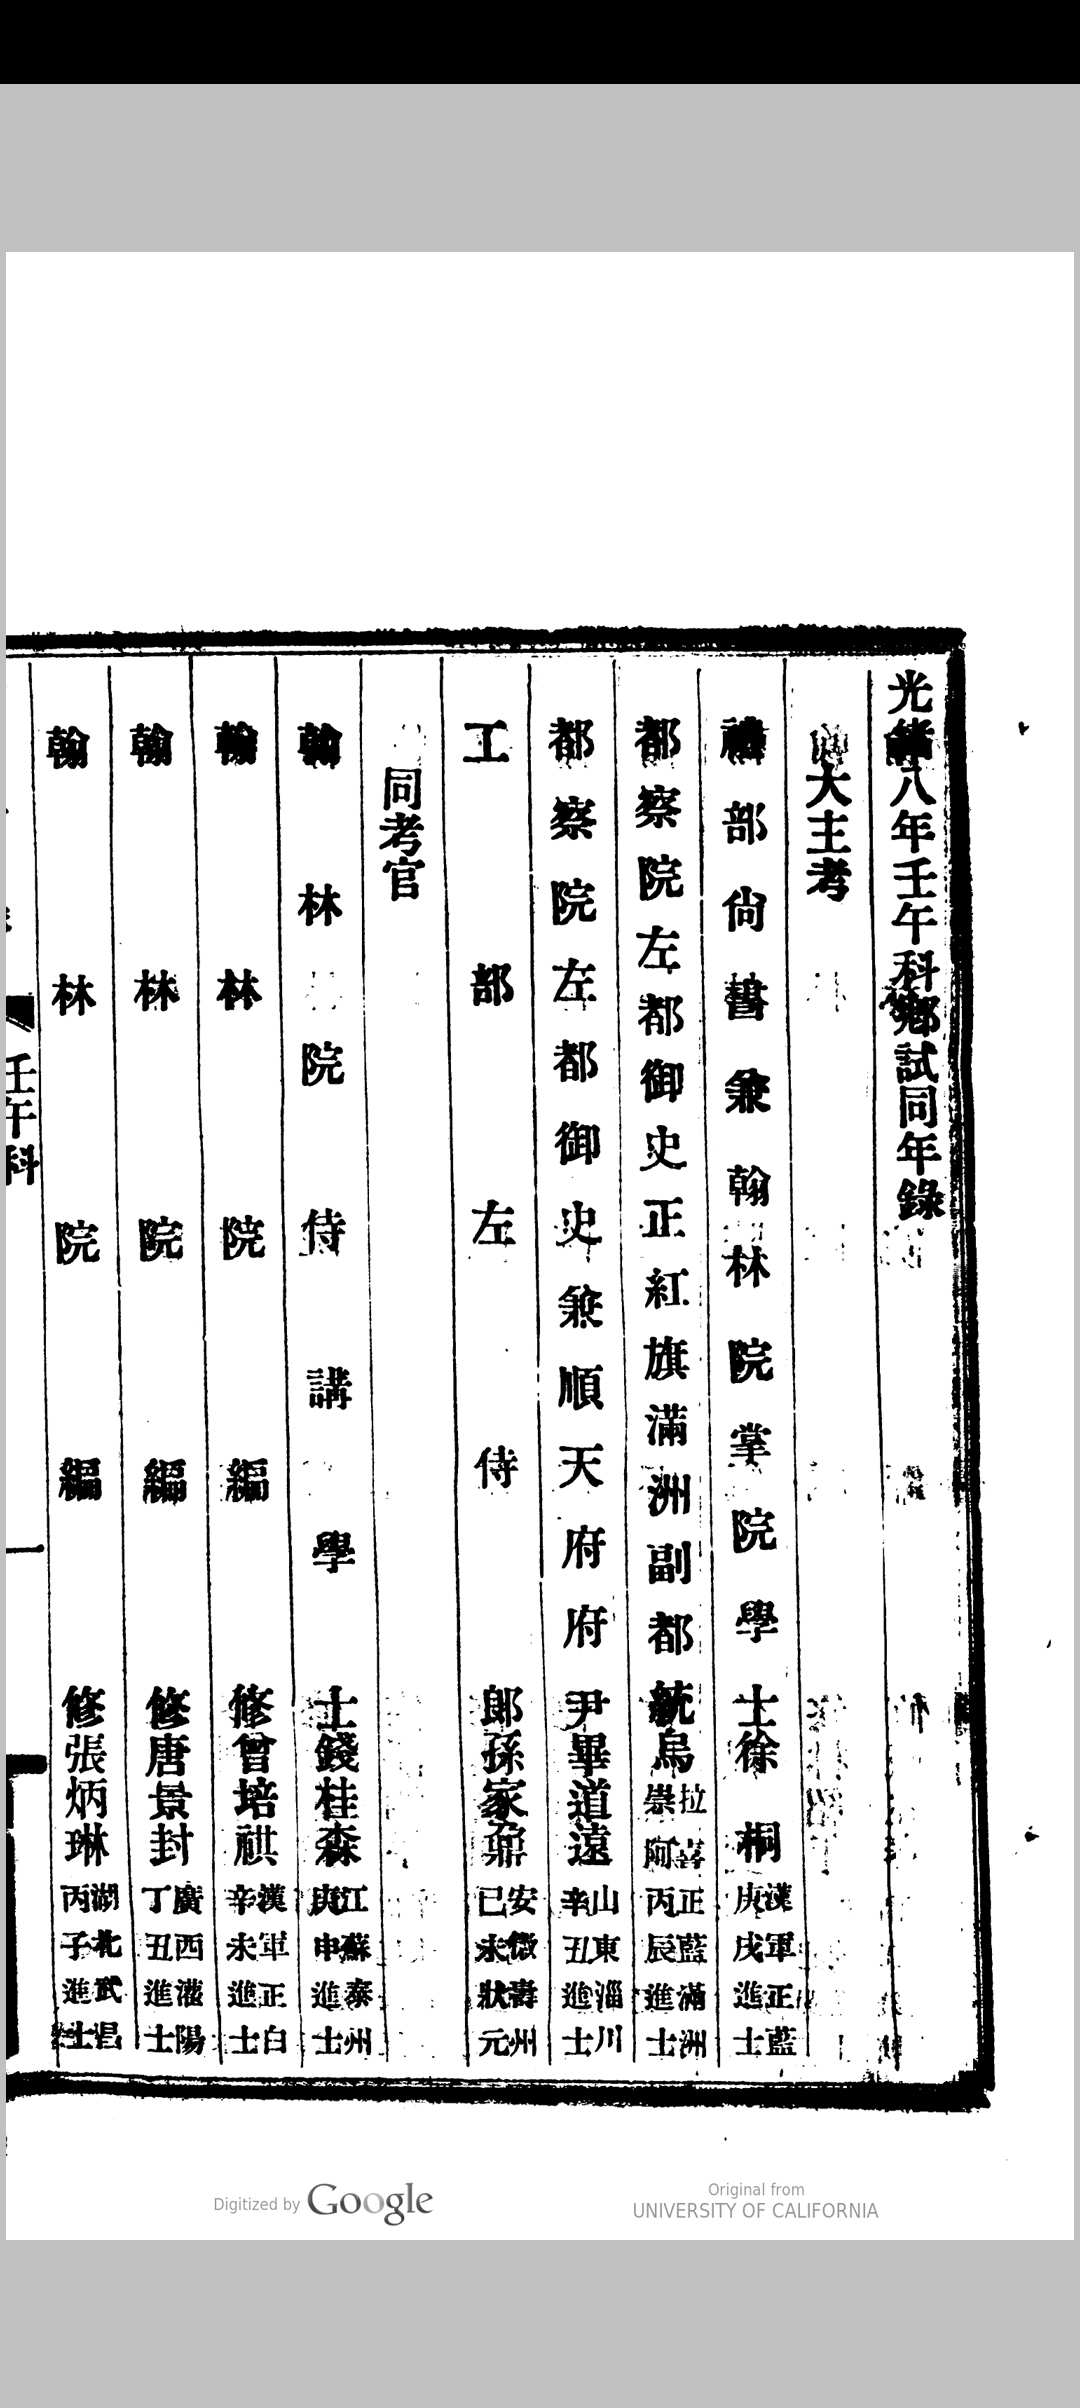 光緒八年壬午科鄉試同年錄
大主考
禮部尙書兼翰林院掌院學士徐桐 漢軍正藍 庚戌進士
都察院左都御史正紅旗滿洲副都統烏拉喜崇阿 正藍滿洲 丙辰進士
都察院左都御史兼順天府府尹畢道遠 山東淄川 辛丑進士
工部左侍郎孫家鼐 安徽壽州 已未狀元
同考官
翰林院侍講學士錢桂森 江蘇泰州 庚申進士
翰林院編修曾培祺 漢軍正白 辛未進士
翰林院編修唐景封 廣西灌陽 丁丑進士
翰林院編修張炳琳 湖北武昌 丙子進士
壬午科
一
Digitized by Google
Original from
UNIVERSITY OF CALIFORNIA